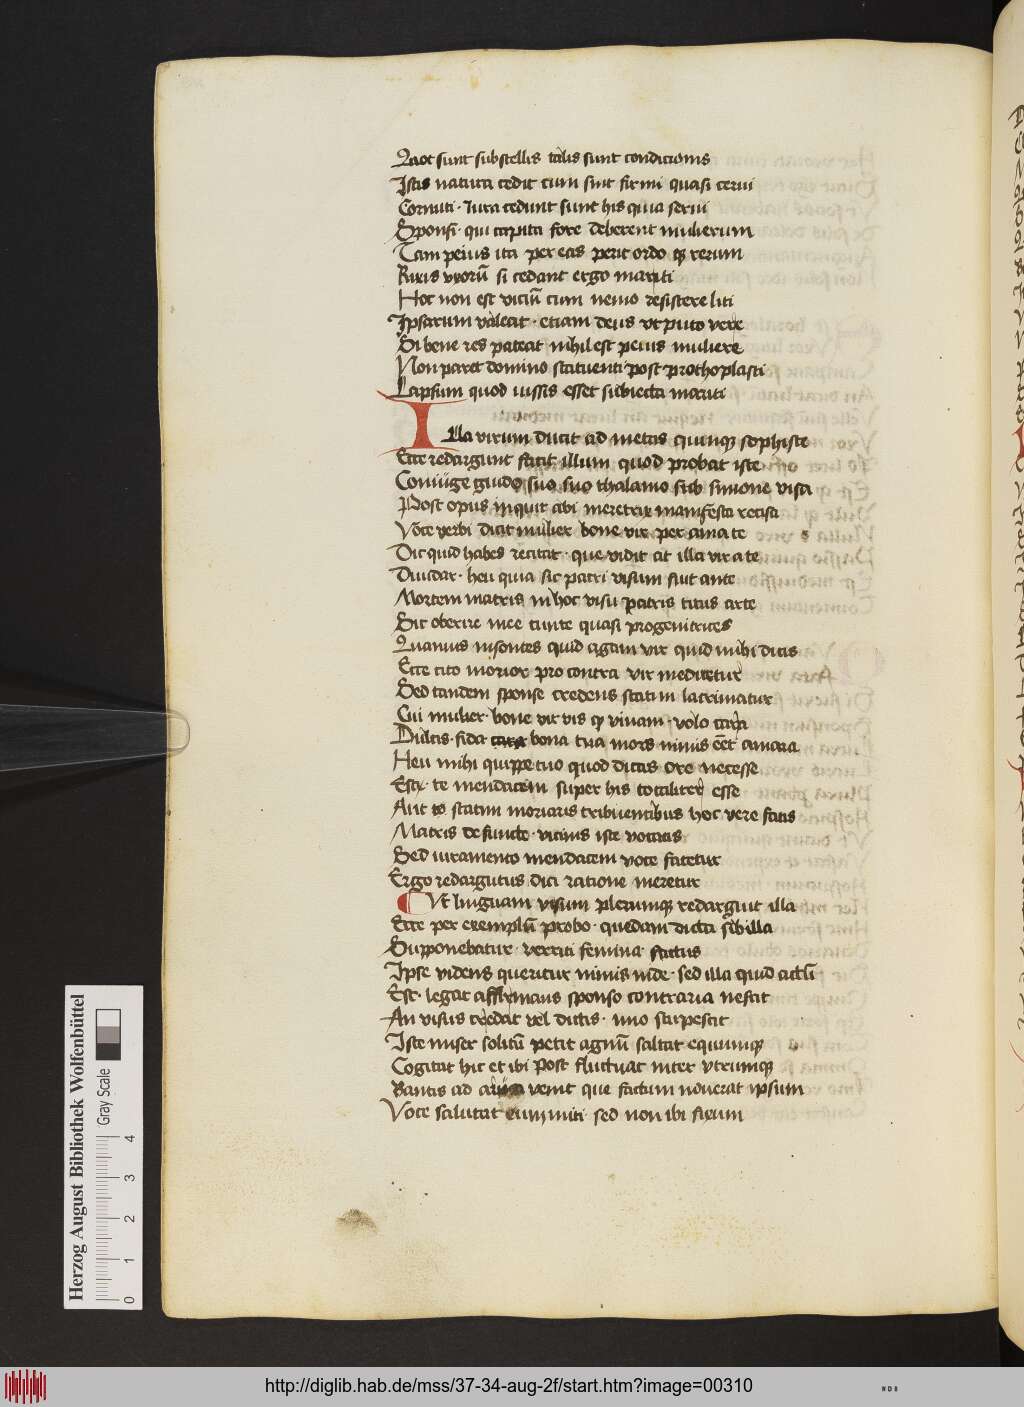 Quot sunt sub stellis talis sunt condicionis
Istis natura cedit cum sint firmi quasi cerui
Cornuti. Iura cedunt sunt his quia serui
Sponsi. qui capita fore deberent mulierum
Tam peius ita per eas perit ordo rerum
Rixis vxorū si cedant ergo mariti
Hoc non est viciū cum nemo resistere liti
Ipsarum valeat. etiam deus vt puto vere
Si bene res pateat nihil est peius muliere
Non paret domino statuenti post prothoplasti
Lapsum quod iussis esset subiecta mariti
Illa virum ducit ad metas quinqȝ sophiste
Ecce redargunt facit illum quod probat iste
Coniuge guido suo suo thalamo sub simone visa
Post opus inquit abi meretrix manifesta recisa
Voce verbi dicit mulier bone vir per ama te
Dic quid habes recitat. que vidit ait illa vir a te
Diuidar. heu quia sic patri visum fuit ante
Mortem matris in hoc visu patris citus arte
Sic obeire mee cuncte quasi progenitrices
Quamuis insontes quid agam vir quid mihi dicis
Ecce cito morior pro contra vir meditetur
Sed tandem sponse credens statim lacrimatur
Cui mulier. bone vir vis qȝ viuam. volo cara
Dulcis. fida bona tua mors nimis eēt amara
Heu mihi quippe tuo quod dicas ore necesse
Est. te mendacem super his totaliter esse
Aut to statim moriaris tribuentibus hoc vere fatis
Matris defuncte. vicinis iste vocatis
Sed iuramento mendacem voce fatetur
Ergo redargutus dici ratione meretur
Vt linguam visum plerumqȝ redarguit illa
Ecce per exemplū probo. quedam dicta sibilla
Supponebatur. verriti femina factus
Ipse videns queritur nimis inde. sed illa quid actū
Est. legat affirmans sponso contraria nescit
An visus credat vel dictis. imo stupescit
Iste miser solitū petit agnū saltat equumqȝ
Cogitat hic et ibi post fluctuat inter vtrumqȝ
Bantis ad venit que factum nouerat ipsum
Voce salutat eum miti sed non ibi fixum
Herzog August Bibliothek Wolfenbüttel
Gray Scale
0 1 2 3 4
http://diglib.hab.de/mss/37-34-aug-2f/start.htm?image=00310